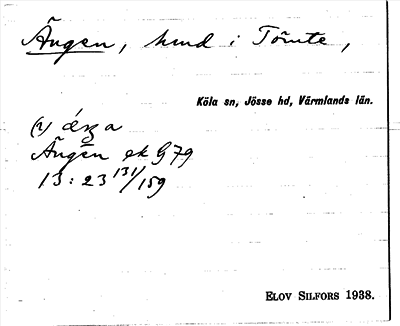 Ängen, hmd i Tömte,
Köla sn, Jösse hd, Värmlands län.
Ängen ek G 79
13:23 131/159
ELOV SILFORS 1938.